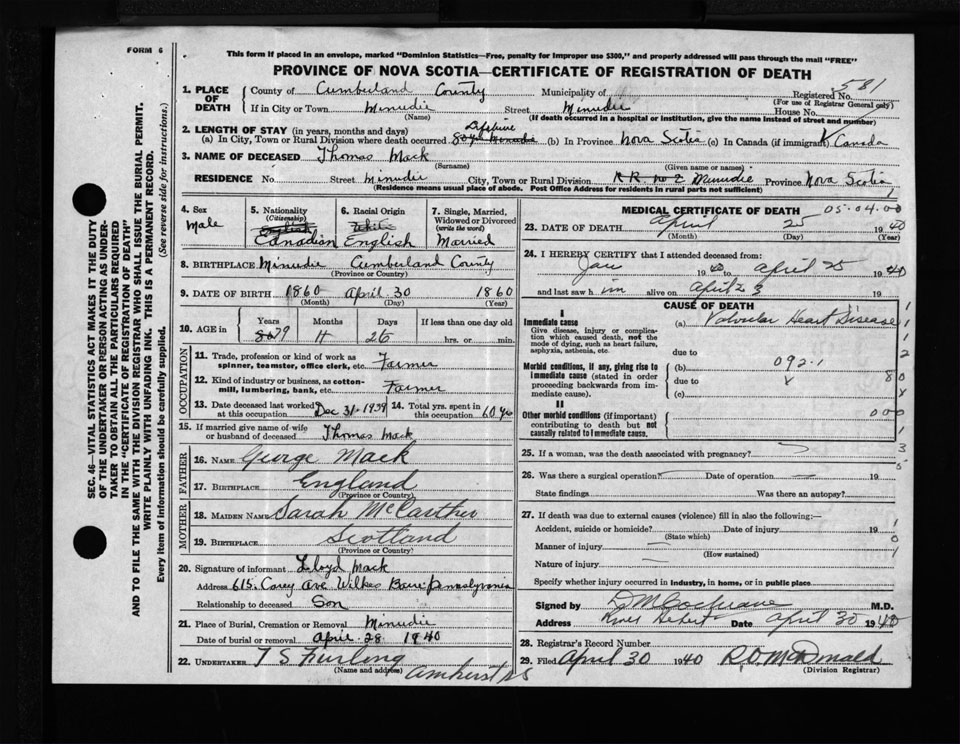 FORM 6
This form if placed in an envelope, marked "Dominion Statistics—Free, penalty for improper use $300," and properly addressed will pass through the mail "FREE"
PROVINCE OF NOVA SCOTIA—CERTIFICATE OF REGISTRATION OF DEATH
SEC. 46—VITAL STATISTICS ACT MAKES IT THE DUTY
OF THE UNDERTAKER OR PERSON ACTING AS UNDER-
TAKER TO OBTAIN ALL THE PARTICULARS REQUIRED
IN THE "CERTIFICATE OF REGISTRATION OF DEATH"
AND TO FILE THE SAME WITH THE DIVISION REGISTRAR WHO SHALL ISSUE THE BURIAL PERMIT.
WRITE PLAINLY WITH UNFADING INK. THIS IS A PERMANENT RECORD.
Every item of Information should be carefully supplied. (See reverse side for instructions.)
1. PLACE OF DEATH County of Cumberland County Municipality of Registered No. 581
(For use of Registrar General only)
If in City or Town Minudie Street Minudie House No.
(Name) (If death occurred in a hospital or institution, give the name instead of street and number)
2. LENGTH OF STAY (in years, months and days)
(a) In City, Town or Rural Division where death occurred Lifetime (b) In Province Nova Scotia (c) In Canada (if immigrant) Canada
3. NAME OF DECEASED Thomas Mack
(Surname) (Given name or names)
RESIDENCE No. Street Minudie City, Town or Rural Division R.R. no 2 Minudie Province Nova Scotia
(Residence means usual place of abode. Post Office Address for residents in rural parts not sufficient)
4. Sex Male
5. Nationality (Citizenship) English Canadian
6. Racial Origin White English
7. Single, Married, Widowed or Divorced (write the word) Married
8. BIRTHPLACE Minudie Cumberland County
(Province or Country)
9. DATE OF BIRTH 1860 April 30 1860
(Month) (Day) (Year)
10. AGE in Years 79 Months 11 Days 26 If less than one day old hrs. or min.
OCCUPATION
11. Trade, profession or kind of work as spinner, teamster, office clerk, etc. Farmer
12. Kind of industry or business, as cotton-mill, lumbering, bank, etc. Farmer
13. Date deceased last worked at this occupation Dec 31-1939 14. Total yrs. spent in this occupation 60 yrs
15. If married give name of wife or husband of deceased Thomas Mack
FATHER
16. NAME George Mack
17. BIRTHPLACE England
(Province or Country)
MOTHER
18. MAIDEN NAME Sarah McCarther
19. BIRTHPLACE Scotland
(Province or Country)
20. Signature of informant Lloyd Mack
Address 615. Carey Ave Wilkes Barre Pennsylvania
Relationship to deceased Son
21. Place of Burial, Cremation or Removal Minudie
Date of burial or removal April 28 1940
22. UNDERTAKER T S Furlong
(Name and address) Amherst NS
MEDICAL CERTIFICATE OF DEATH 05.04.00
23. DATE OF DEATH April 25 1940
(Month) (Day) (Year)
24. I HEREBY CERTIFY that I attended deceased from:
Jan 1940 to April 25 1940
and last saw him alive on April 23 19
CAUSE OF DEATH
I
Immediate cause (a) Valvular Heart Disease
Give disease, injury or complication which caused death, not the mode of dying, such as heart failure, asphyxia, asthenia, etc.
due to
Morbid conditions, if any, giving rise to immediate cause (stated in order proceeding backwards from immediate cause).
(b) 092.1
due to
(c)
II
Other morbid conditions (if important) contributing to death but not causally related to immediate cause.
25. If a woman, was the death associated with pregnancy?
26. Was there a surgical operation? Date of operation 19
State findings Was there an autopsy?
27. If death was due to external causes (violence) fill in also the following:—
Accident, suicide or homicide? Date of injury 19
(State which)
Manner of injury
(How sustained)
Nature of injury
Specify whether injury occurred in industry, in home, or in public place
Signed by D M Cochrane M.D.
Address River Hebert Date April 30 1940
28. Registrar's Record Number
29. Filed April 30 1940 R.D. McDonald
(Division Registrar)